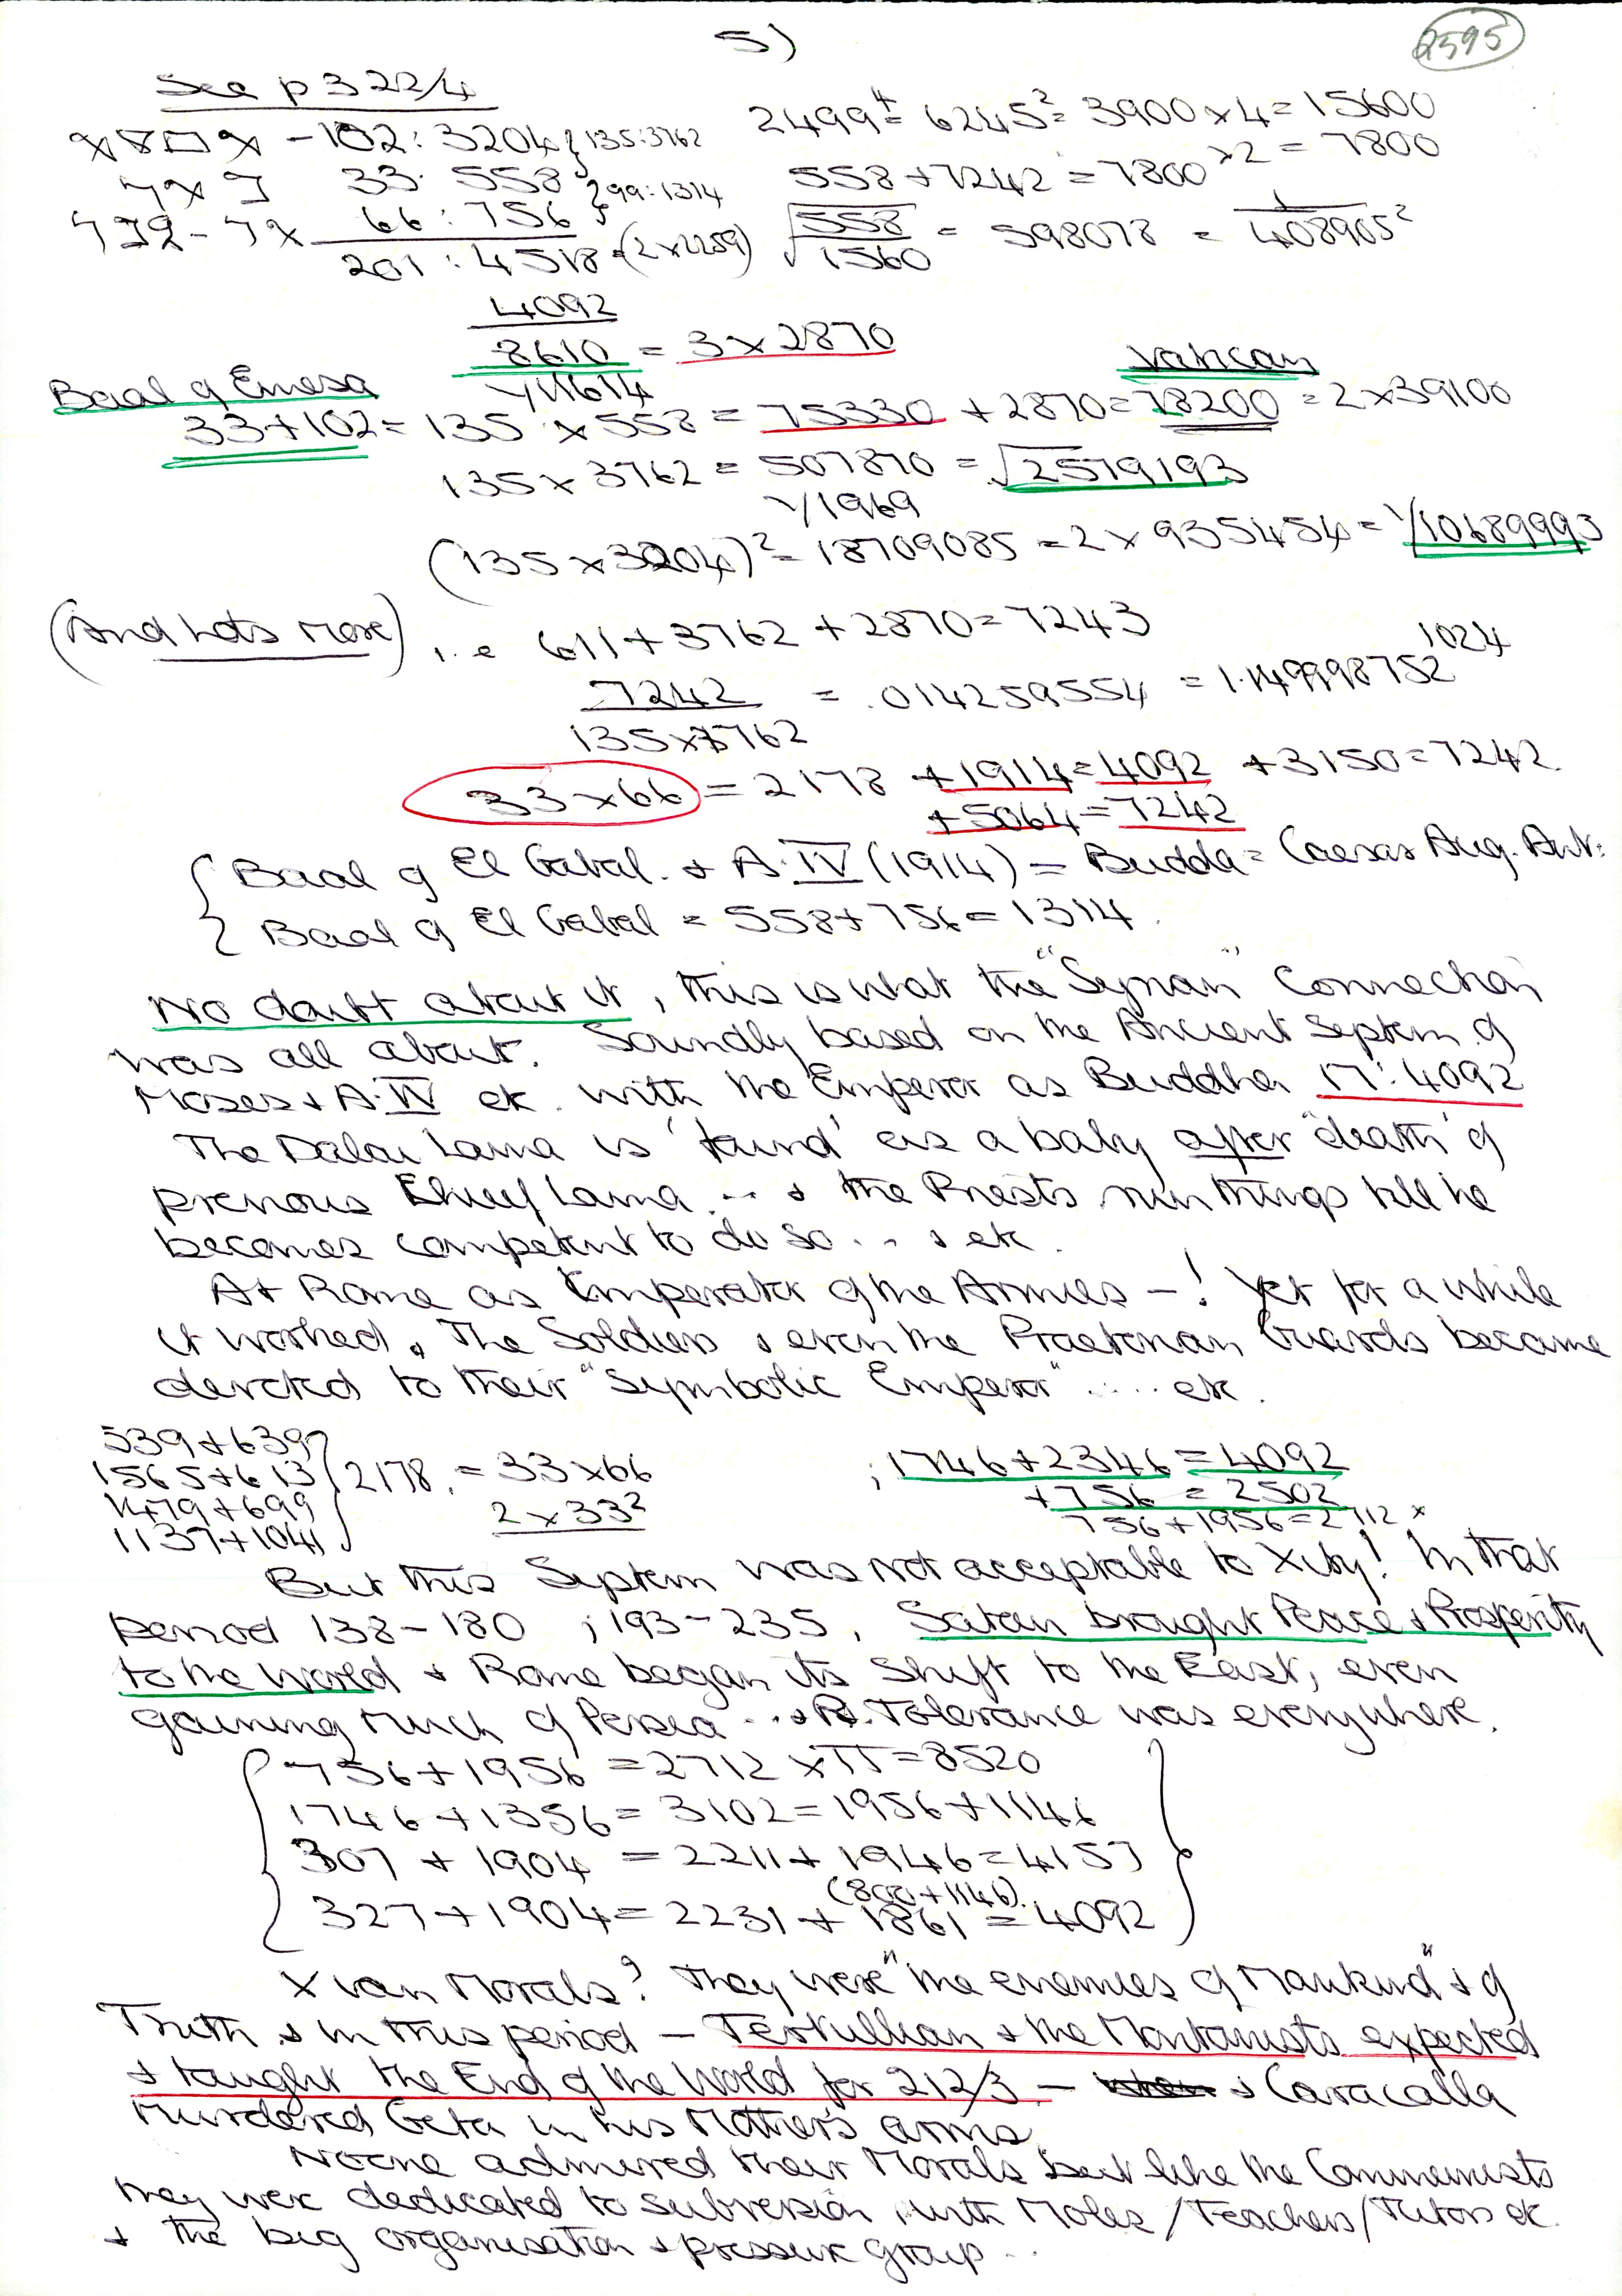 5)
2595
See p 322/4
- 102 : 3204 } 135:3762
33 : 558 } 99:1314
66 : 756
201 : 4518 (2x2259)
2499⁴ = 6245² = 3900 x 4 = 15600
558 + 7242 = 7800 x2 = 7800
√558/1560 = 598078 = 1/408905²
4092
8610 = 3 x 2870
1/11614
Vatican
Baal of Emesa
33+102 = 135 x 558 = 75330 + 2870 = 78200 = 2x39100
135 x 3762 = 507870 = √2579193
1/1969
(135 x 3204)² = 18709085 = 2 x 935454 = 1/10689993
(And Lots More) i.e 611 + 3762 + 2870 = 7243
7242 / 135x3762 = .014259554 = 1.149998752 1024
33 x 66 = 2178 + 1914 = 4092 + 3150 = 7242
+5064 = 7242
{ Baal of El Gabal. + A.IV (1914) = Budda = Caesar Aug. Ant:
{ Baal of El Gabal = 558 + 756 = 1314.
No doubt about it, this is what the "Syrian" Connection
was all about. Soundly based on the Ancient System of
Moses + A.IV etc. with the Emperor as Buddha 17:4092
The Dalai Lama is 'found' as a baby after 'death' of
previous Chief Lama ... + the Priests run things till he
becomes competent to do so ... + etc.
At Rome as Emperator of the Armies - ! Yet for a while
it worked. The Soldiers + even the Praetorian Guards became
devoted to their "Symbolic Emperor" .... etc.
539+639
1565+613 } 2178. = 33x66
1479+699
1137+1041
2 x 33²
; 1746+2346 = 4092
+756 = 2502
756+1956=2712 x
But this System was not acceptable to Xity! In that
period 138-180 ; 193-235, Satan brought Peace + Prosperity
to the World + Rome began its shift to the East, even
gaining much of Persia ... + R. Tolerance was everywhere.
756+1956 = 2712 x π = 8520
1746+1356 = 3102 = 1956+1146
307 + 1904 = 2211 + 1946 = 4157
(800+1146)
327 + 1904 = 2231 + 1861 = 4092
X ian Morals? They were "the enemies of Mankind" + of
Truth + in this period - Tertullian + the Montanists expected
+ taught the End of the World for 212/3 - + Caracalla
murdered Geta in his Mother's arms.
Noone admired their Morals but like the Communists
they were dedicated to subversion, with Moles/Teachers/Tutors etc.
+ the big organisation + pressure group ...